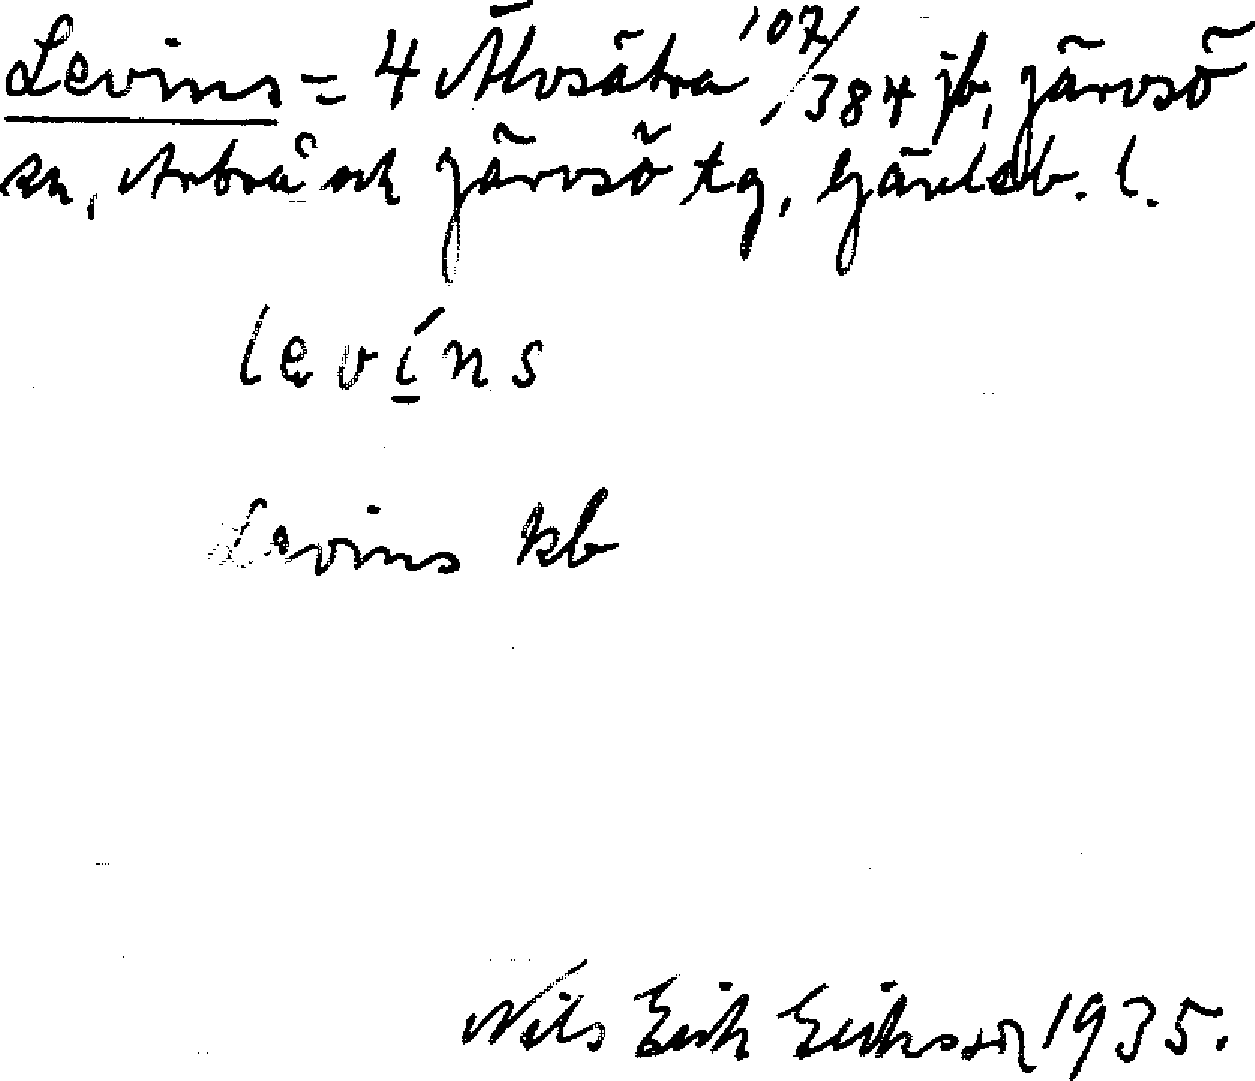 Levins = 4 Älvsätra 107/384 jb, Järvsö
sn, Arbrå och Järvsö tg, Gävleb. l.
levíns
Levins kb
Nils Erik Eriksson 1935.